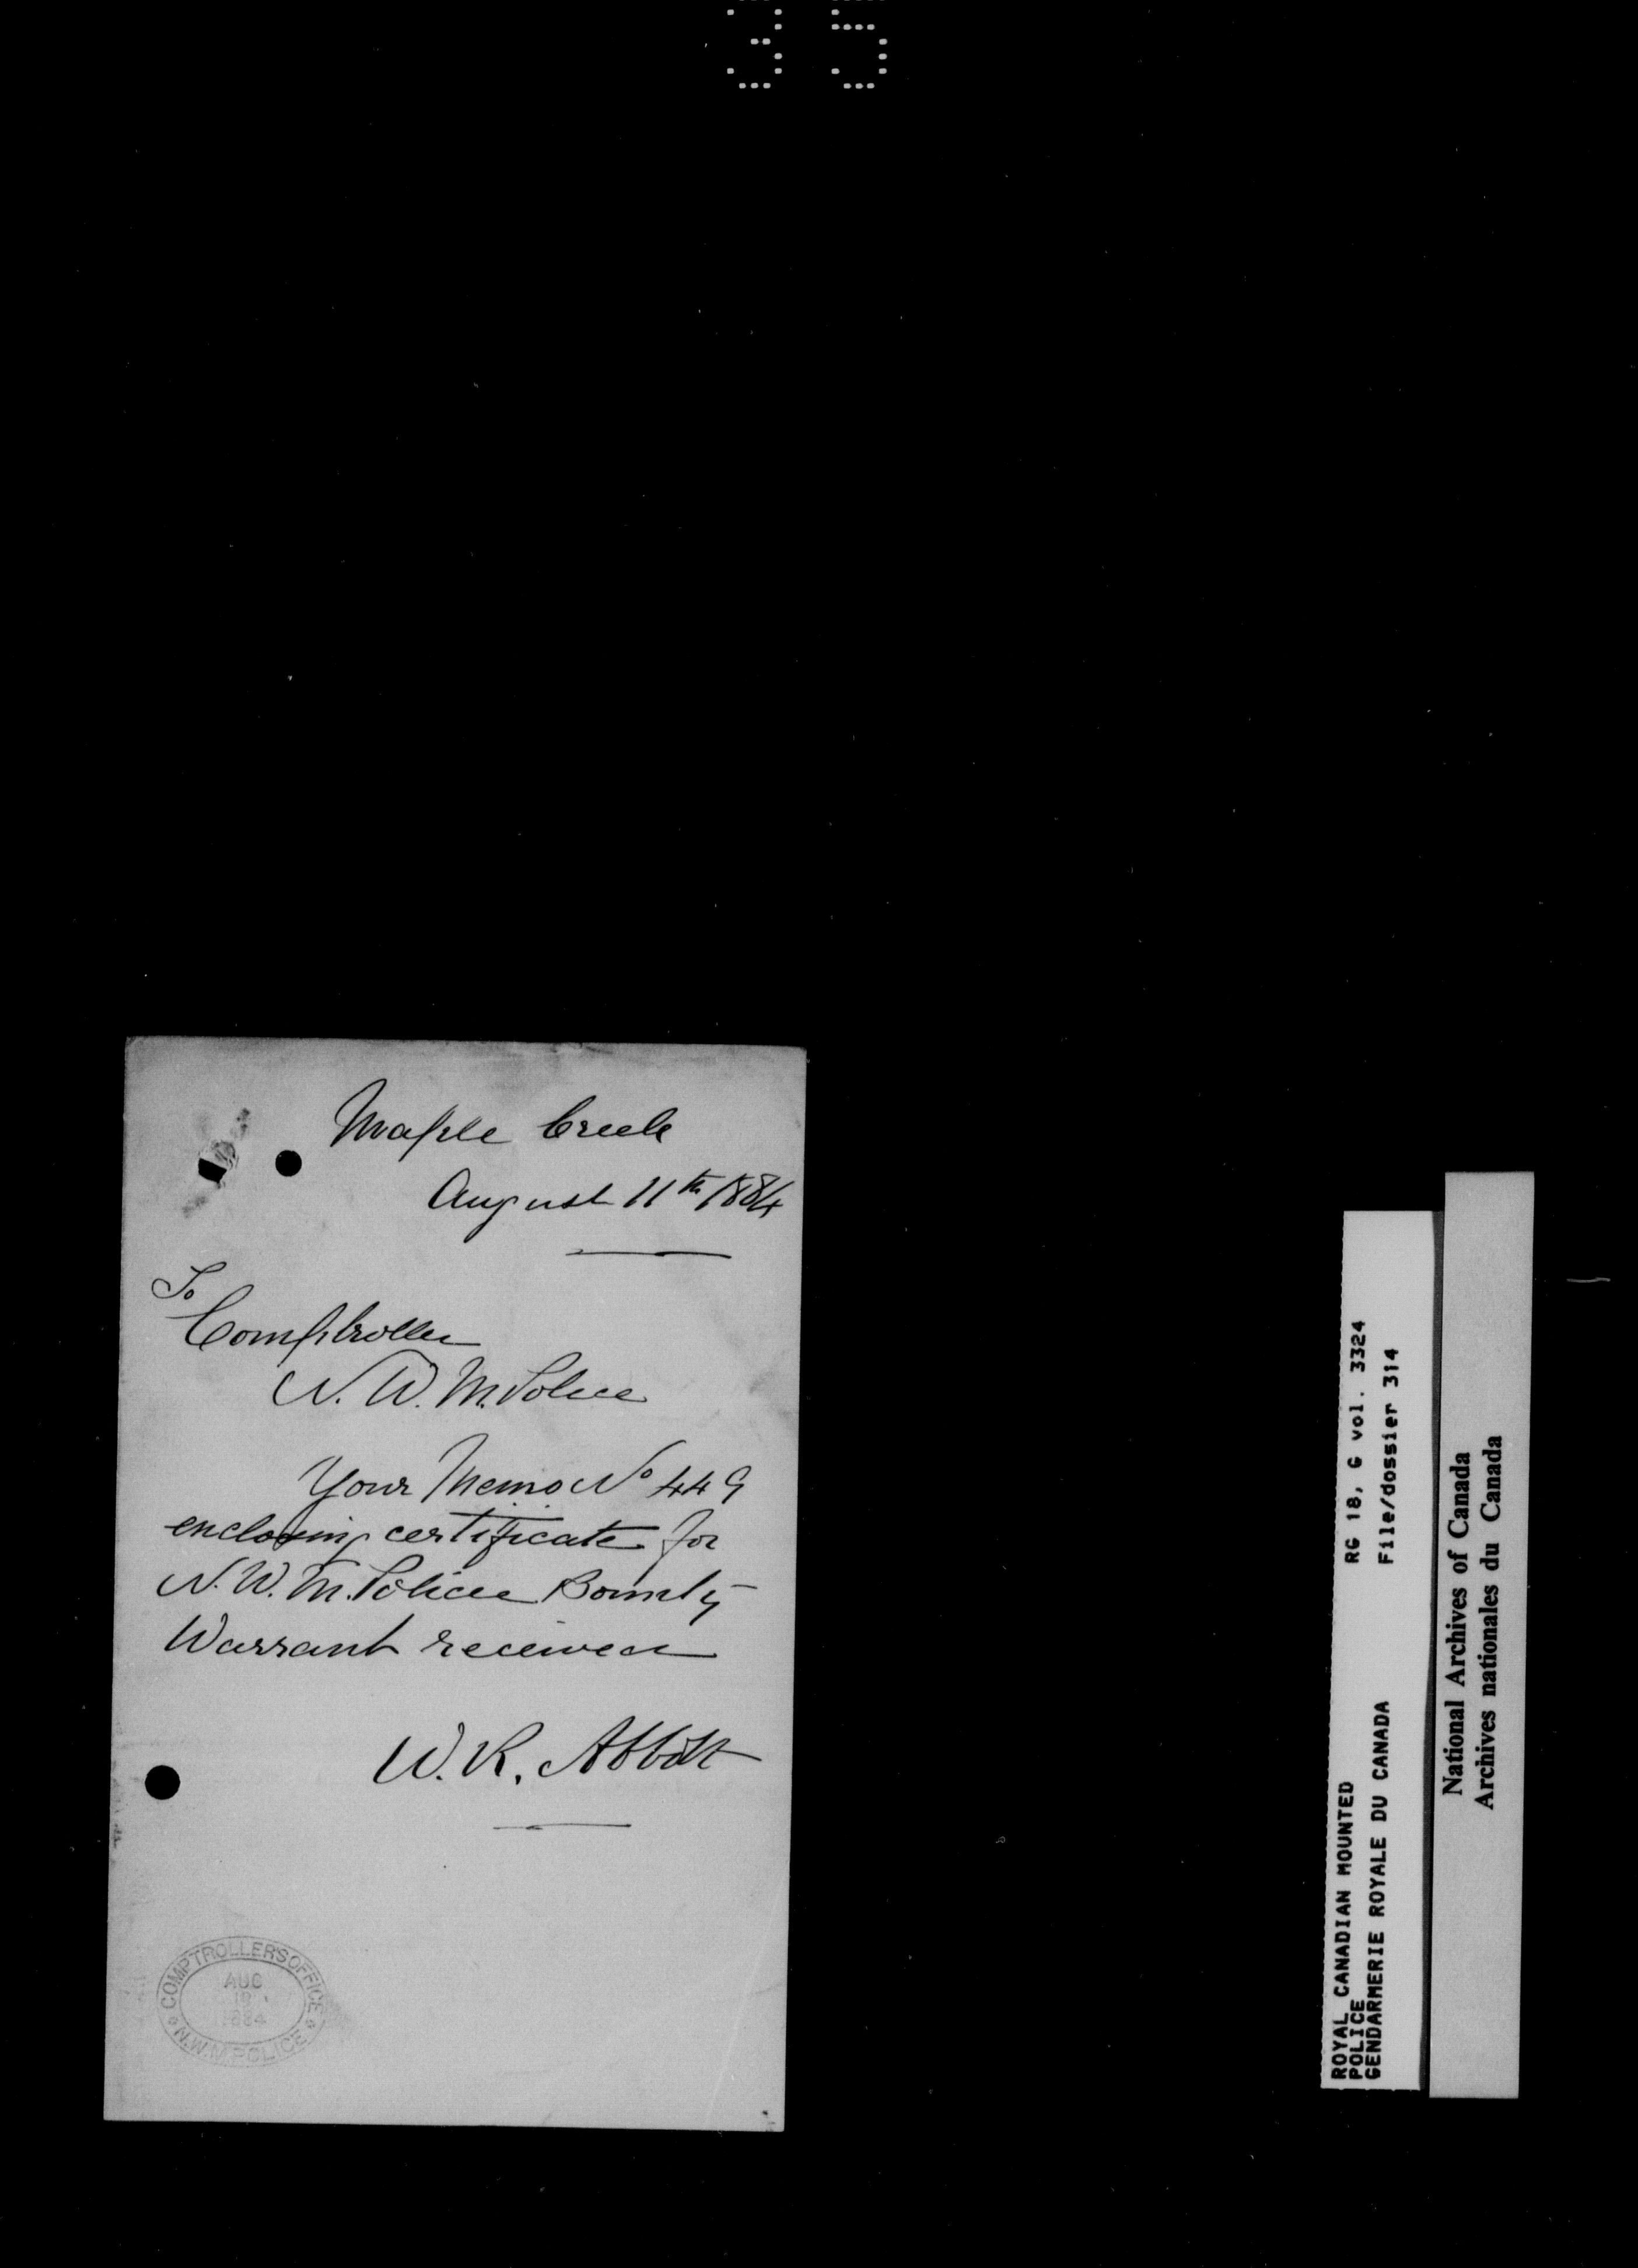 35
Maple Creek
August 11th 1884
To
Comptroller
N. W. M. Police
Your Memo No 449
enclosing certificate for
N. W. M. Police Bounty
Warrant received
W. R. Abbott
COMPTROLLERS OFFICE
AUG
1884
N.W.M. POLICE
ROYAL CANADIAN MOUNTED
POLICE
GENDARMERIE ROYALE DU CANADA
RG 18, G vol. 3324
File/dossier 314
National Archives of Canada
Archives nationales du Canada